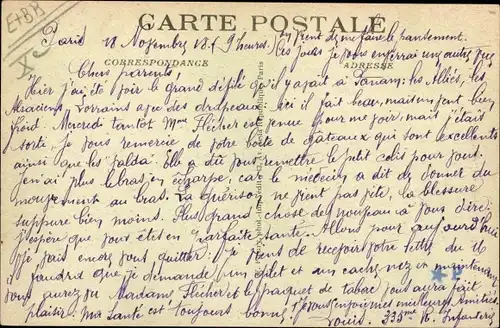 E+BB
CARTE POSTALE
CORRESPONDANCE
ADRESSE
Paris 18 Novembre 18 (9 heures) On vient de me faire le pansement.
Ces jours je vous enverrai un autre
Chers parents,
Hier j'ai été voir le grand défilé qu'il y avait à Panam: les Alliés, les
Alsaciens, Lorrains avec des drapeaux. Ici il fait beau, mais un bien
froid. Mercredi tantôt Mme Flécher est venue pour me voir, mais j'étais
sorti. Je vous remercie de votre boîte de gâteaux qui sont excellents
ainsi que les Elle a dû vous remettre le petit colis pour vous.
Je n'ai plus le bras en écharpe, car le médecin a dit de donner du
mouvement au bras. La guérison ne vient pas vite, la blessure
suppure bien moins. Plus grand chose de nouveau à vous dire.
J'espère que vous êtes en parfaite santé. Allons pour aujourd'hui
je vais encore vous quitter. Je vient de recevoir votre lettre du 16
faudrait que je demande un billet et un cachet, en maintenant
vous aurez vu Madame Flécher et le paquet de tabac vous aura fait
plaisir. Ma santé est toujours bonne. Je vous envoie mes meilleures Amitiés
Louis. 335me R. Infanterie